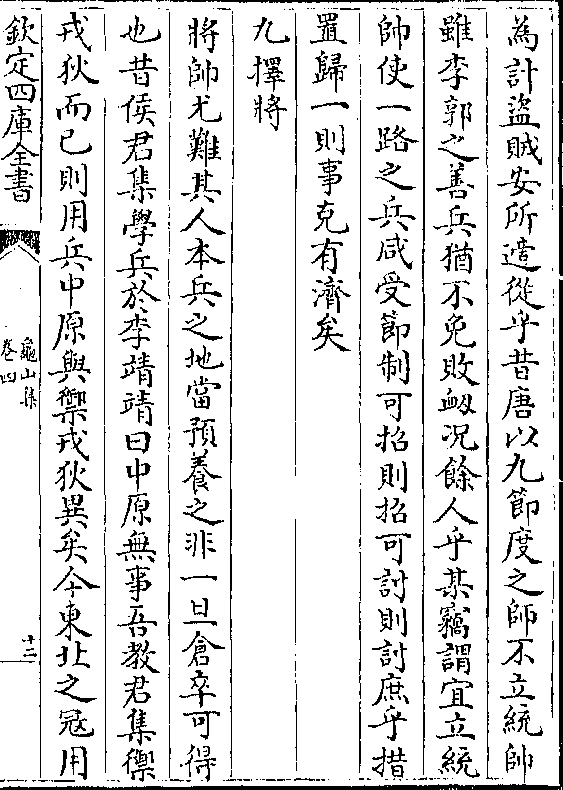 為計盜賊安所適從乎昔唐以九節度之師不立統帥
雖李郭之善兵猶不免敗衂况餘人乎某竊謂宜立統
帥使一路之兵咸受節制可招則招可討則討庶乎措
置歸一則事克有濟矣
九擇將
將帥尤難其人本兵之地當預養之非一旦倉卒可得
也昔侯君集學兵於李靖靖曰中原無事吾教君集禦
戎狄而已則用兵中原與禦戎狄異矣今東北之冦用
欽定四庫全書
龜山集
卷四
十二